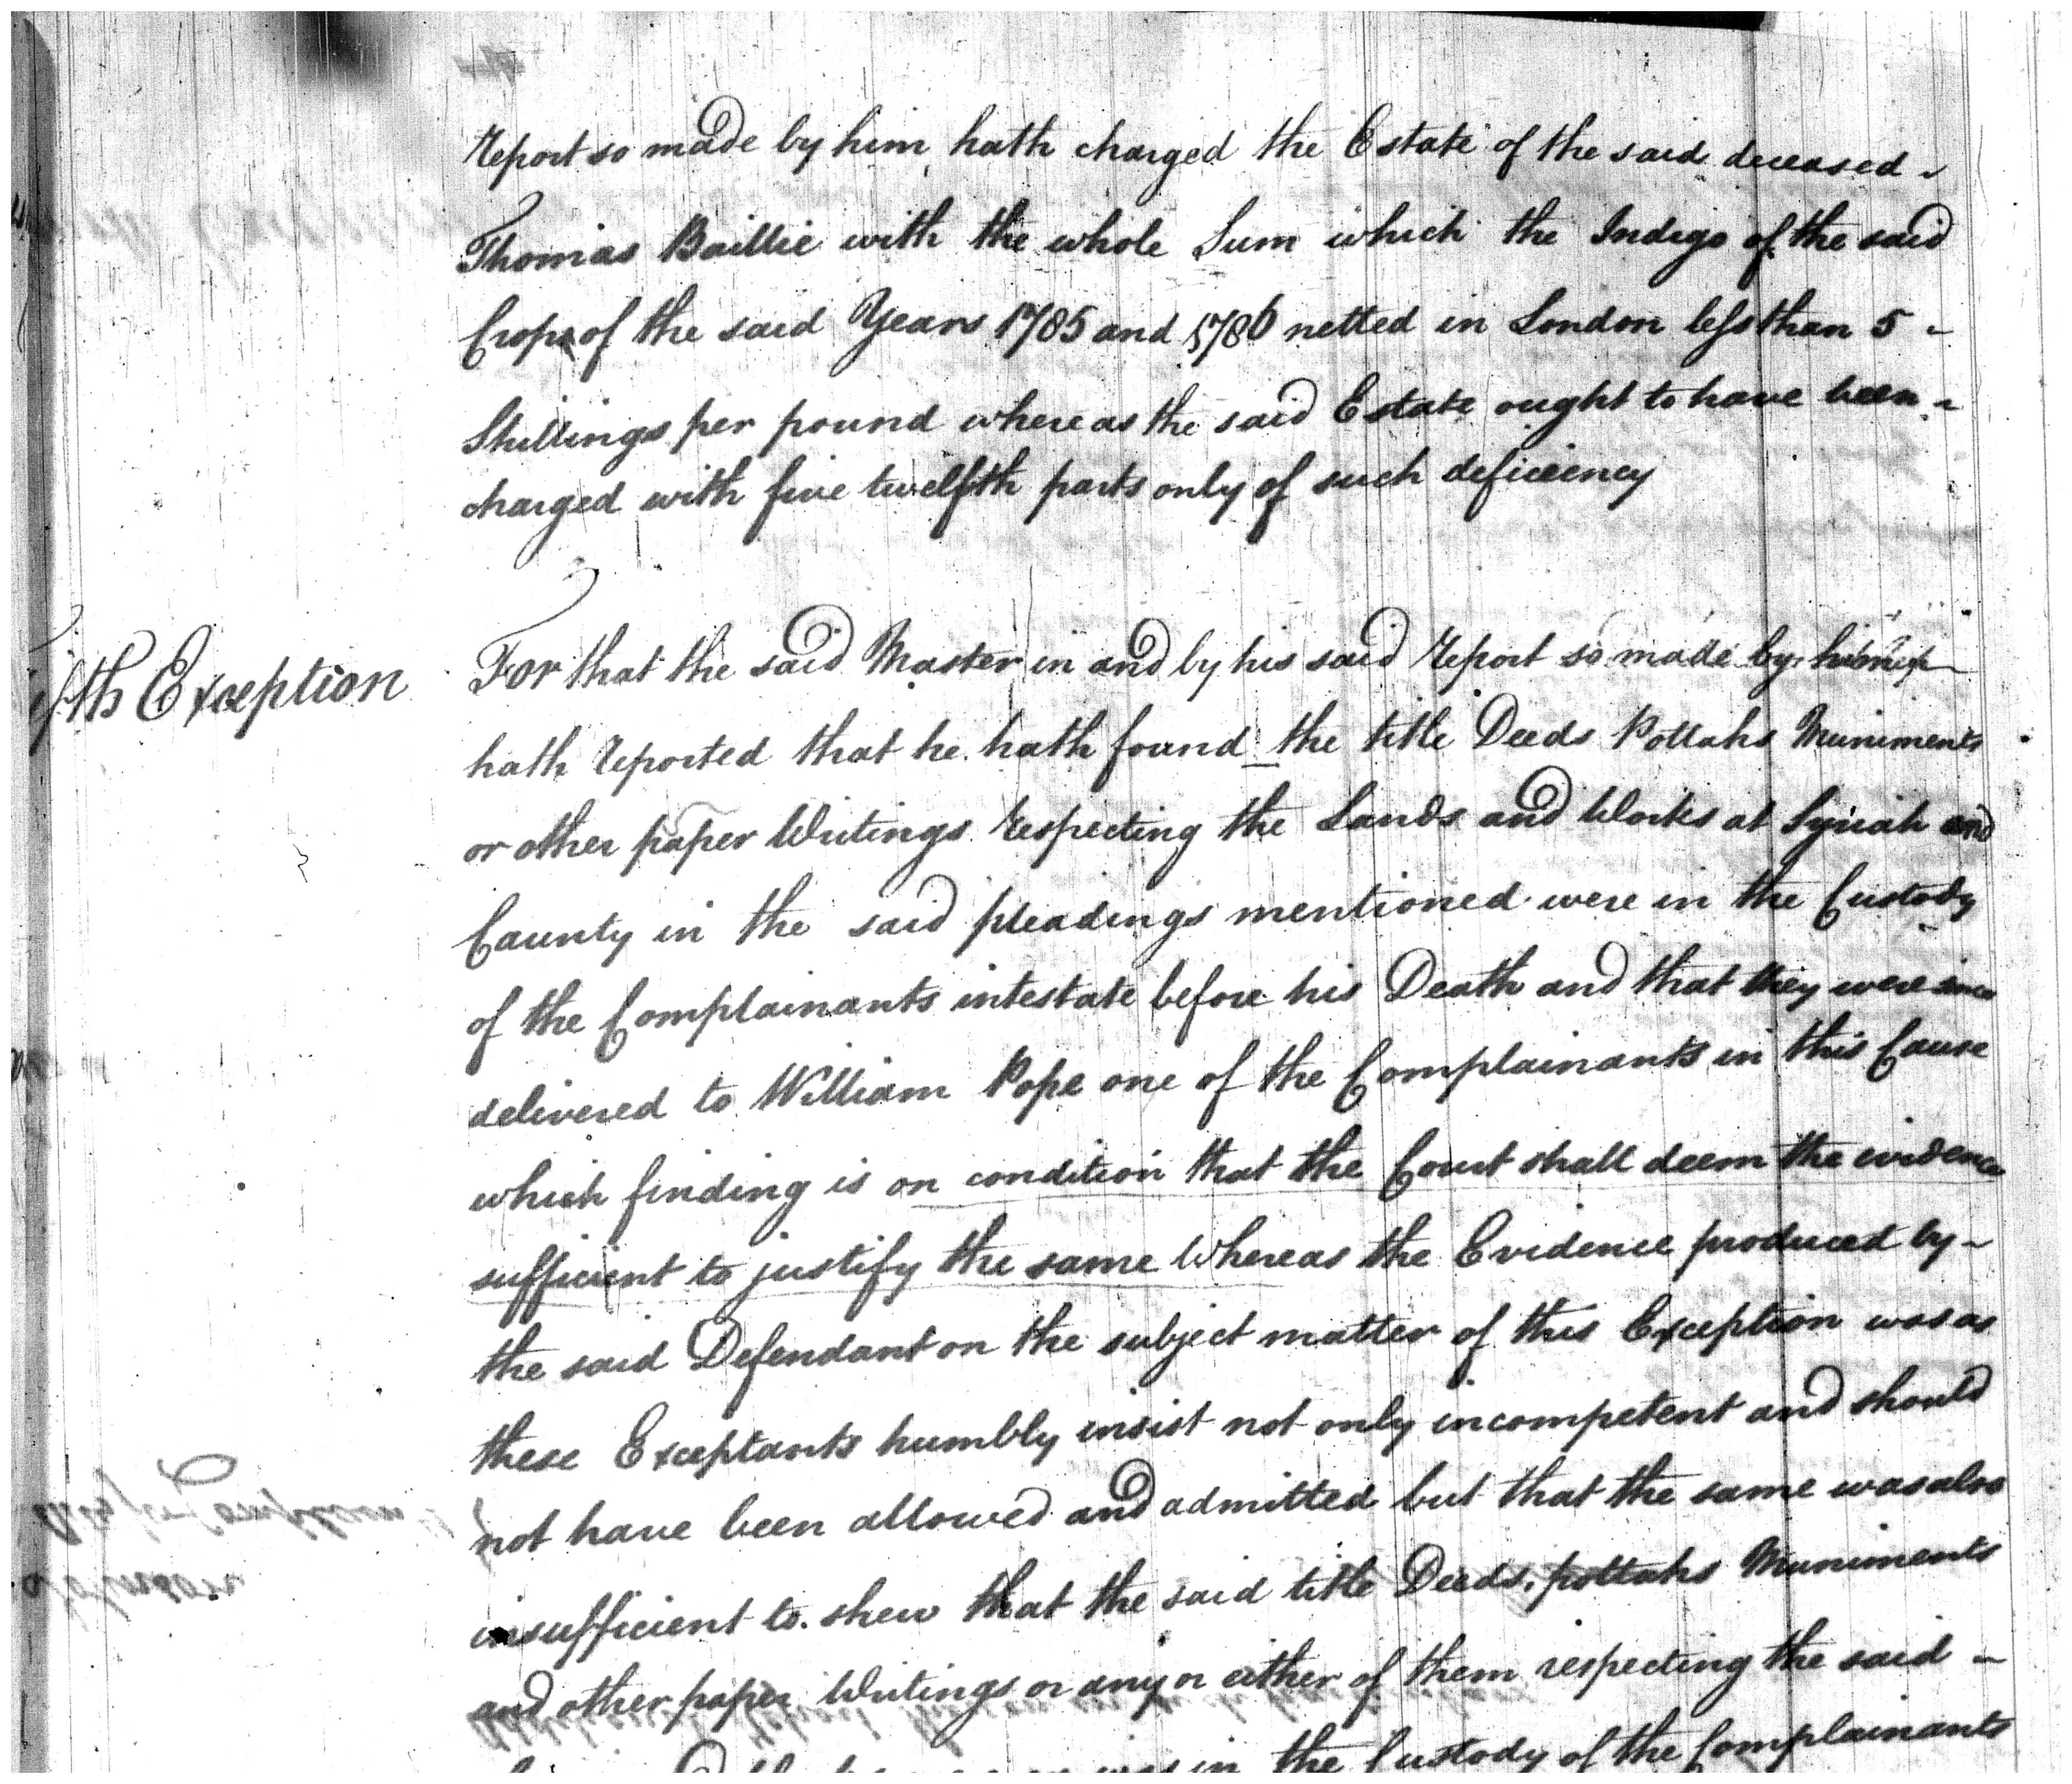 report so made by him hath charged the Estate of the said deceased
Thomas Baillie with the whole Sum which the Indigo of the said
Crops of the said Years 1785 and 1786 netted in London less than 5
Shillings per pound whereas the said Estate ought to have been
charged with five twelfth parts only of such deficiency
fth Exception
For that the said Master in and by his said report so made by
hath reported that he hath found the title Deeds Pottahs Muniments
or other paper Writings respecting the Lands and Works at Syriah and
Caunty in the said pleadings mentioned were in the Custody
of the Complainants intestate before his Death and that they were since
delivered to William Pope one of the Complainants in this Cause
which finding is on condition that the Court shall deem the evidence
sufficient to justify the same Whereas the Evidence produced by
the said Defendant on the subject matter of this Exception was as
these Exceptants humbly insist not only incompetent and should
not have been allowed and admitted but that the same was also
insufficient to shew that the said title Deeds, pottahs Muniments
and other paper Writings or any or either of them respecting the said
was in the Custody of the Complainants